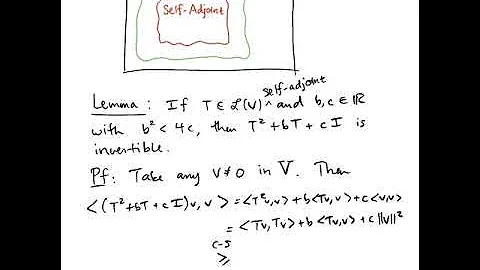 Self-Adjoint
self-adjoint
Lemma : If T ∈ L(V) ^ and b, c ∈ ℝ
with b² < 4c, then T² + bT + cI is
invertible.
Pf: Take any v ≠ 0 in V. Then
<(T²+bT+cI)v, v> = <T²v,v> + b<Tv,v> + c<v,v>
= <Tv,Tv> + b<Tv,v> + c‖v‖²
C-S
≥